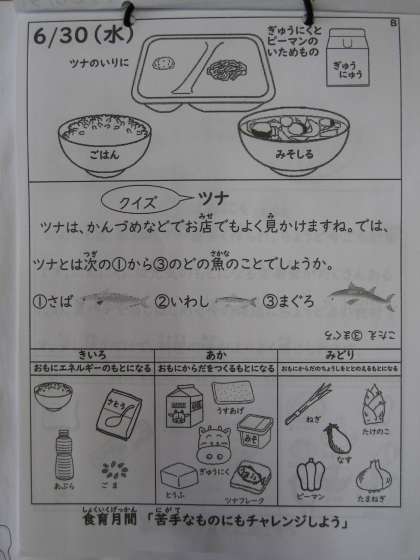 8
6/30(水)
ツナのいりに
ぎゅうにくと
ピーマンの
いためもの
ぎゅう
にゅう
ごはん
みそしる
クイズ
ツナ
ツナは、かんづめなどでお店でもよく見かけますね。では、
みせ
み
ツナとは次の①から③のどの魚のことでしょうか。
つぎ
さかな
①さば ②いわし ③まぐろ
こたえ ③まぐろ
きいろ
あか
みどり
おもにエネルギーのもとになる
おもにからだをつくるもとになる
おもにからだのちょうしをととのえるもとになる
さとう
あぶら
ごま
うすあげ
みそ
ぎゅうにく
とうふ
ツナフレーク
ねぎ
たけのこ
なす
ピーマン
たまねぎ
しょくいくげっかん
にがて
食育月間 「苦手なものにもチャレンジしよう」